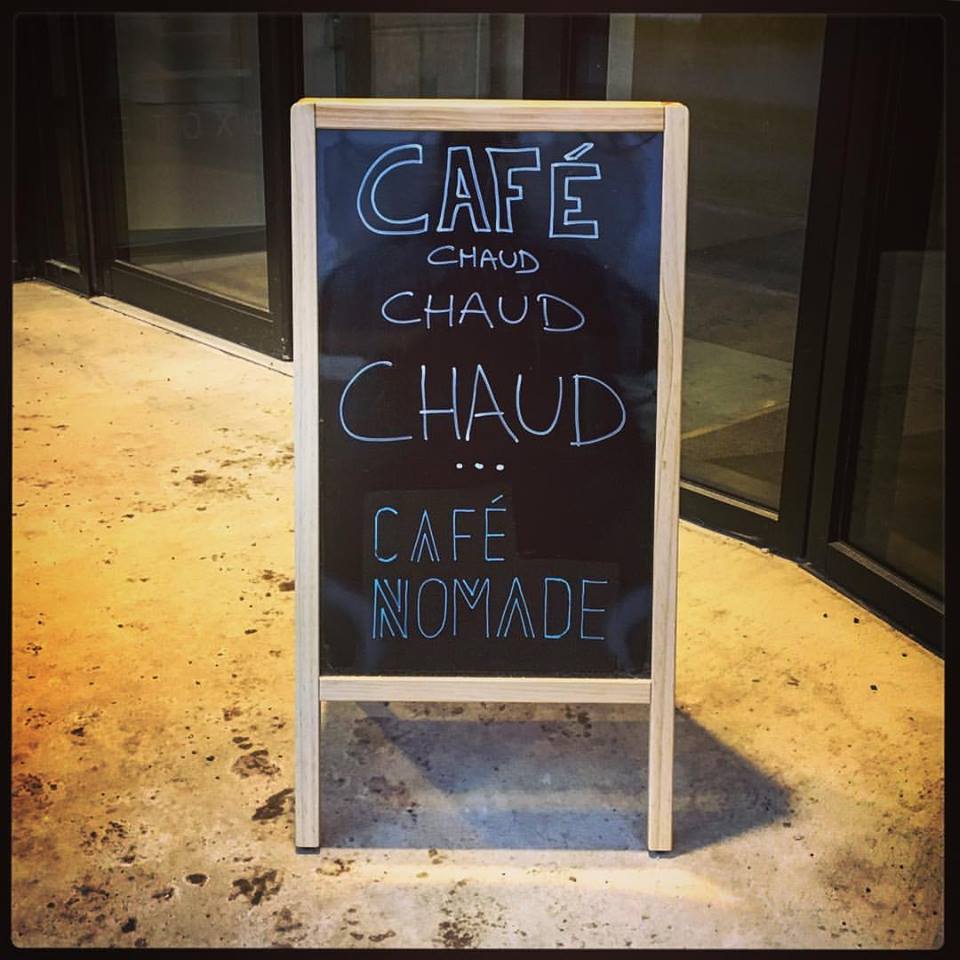 CAFÉ
CHAUD
CHAUD
CHAUD
...
CAFÉ
NOMADE